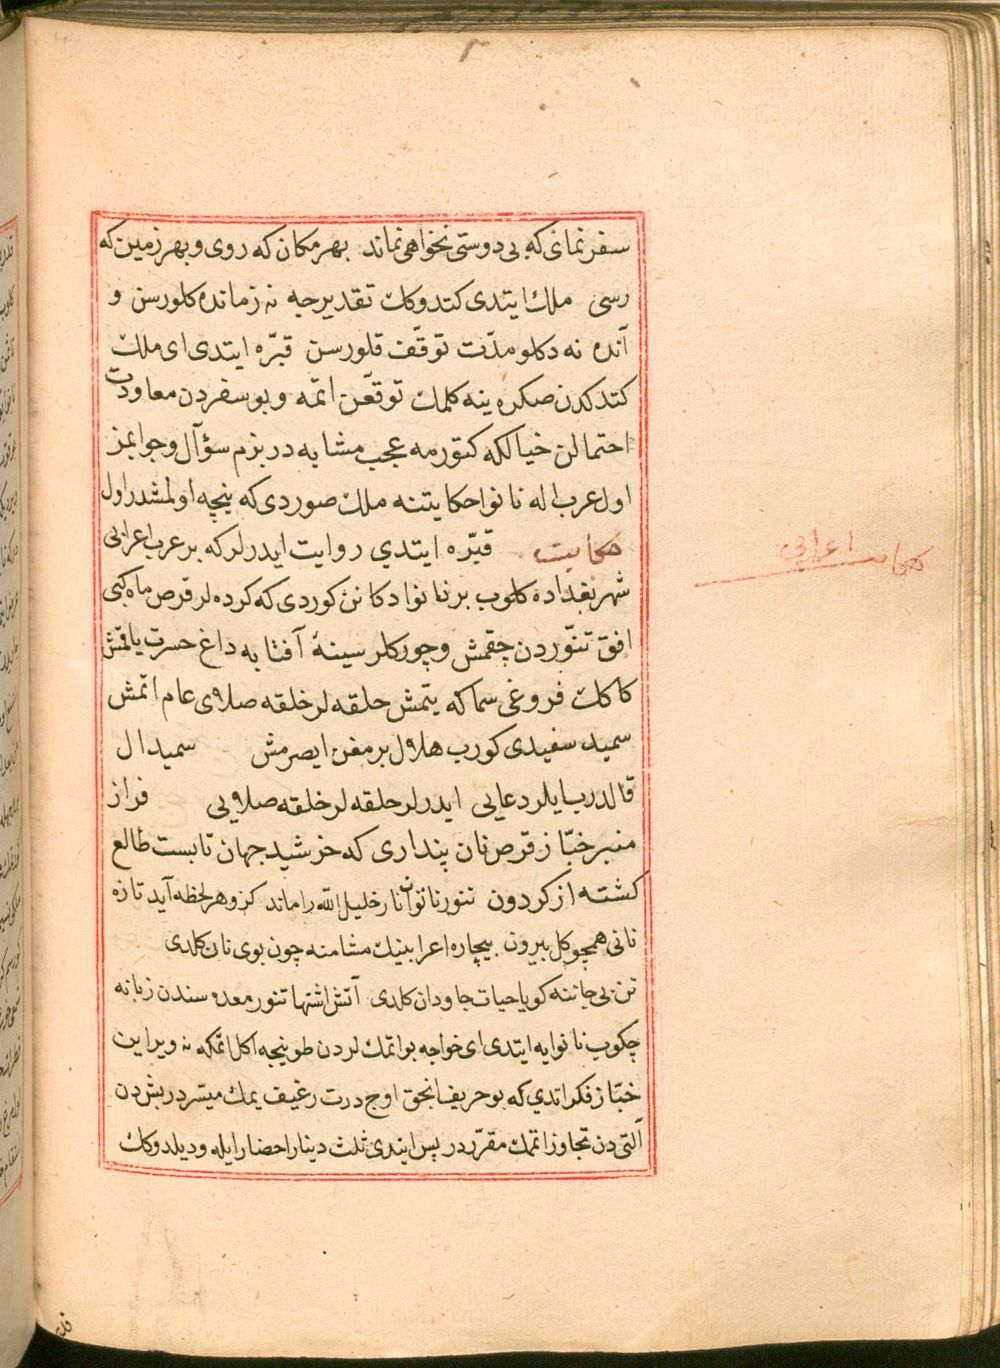 سفر نمای که بی دوستی نخواهی نماند بهر مکان که روی و بهر زمین که
رسی ملك ایتدی کتدوکك تقدیرجه نه زمانده کلورسن و
آنده نه دکلو مدّت توقّف قلورسن قبّره ایتدی ای ملك
کتدکدن صکره ینه کلمك توقّعن اتمه و بو سفردن معاودت
احتمالن خیال کله کتورمه عجب مشابه در بزم سؤال و جوابمز
اول عرب اله نانوا حکایتنه ملك صوردی که نیجه اولمشدر اول
حکایت قبّره ایتدی روایت ایدرلر که بر عرب اعرابی
شهر بغداده کلوب بر نانوا دکانن کوردی که کرده لر قرص ماه کبی
افق تنّوردن چقمش و چورکلر سینهٔ آفتابه داغ حسرت یاقمش
کاکك فروغی سماکه یتمش حلقه لر خلقه صلای عام اتمش
سمید سفیدی کورب هلال برمغن ایصرمش سمید ال
قالدرب ایلر دعایی ایدرلر حلقه لر خلقه صلایی فراز
منبر خبّاز قرص نان پنداری که خرشید جهان تابست طالع
کشته از کردون تنور نانوان نار خلیل الله را ماند کزو هر لحظه آید تازه
نانی همچو کل بیرون بیچاره اعرابینك مشامنه چون بوی نان کلدی
تن بی جاننه کویا حیات جاودان کلدی آتش اشتها تنور معده سندن زبانه
چکوب نانوایه ایتدی ای خواجه بو اتمك لردن طوینجه اکل اتمکه نه ویراین
خبّاز فکر اتدی که بو حریف انجق اوج درت رغیف یمك میسّردر بش دن
آلتی دن تجاوز اتمك مقرّردر پس ایتدی ثلث دینار احضار ایله و دیلدوکك
حکایت اعرابی